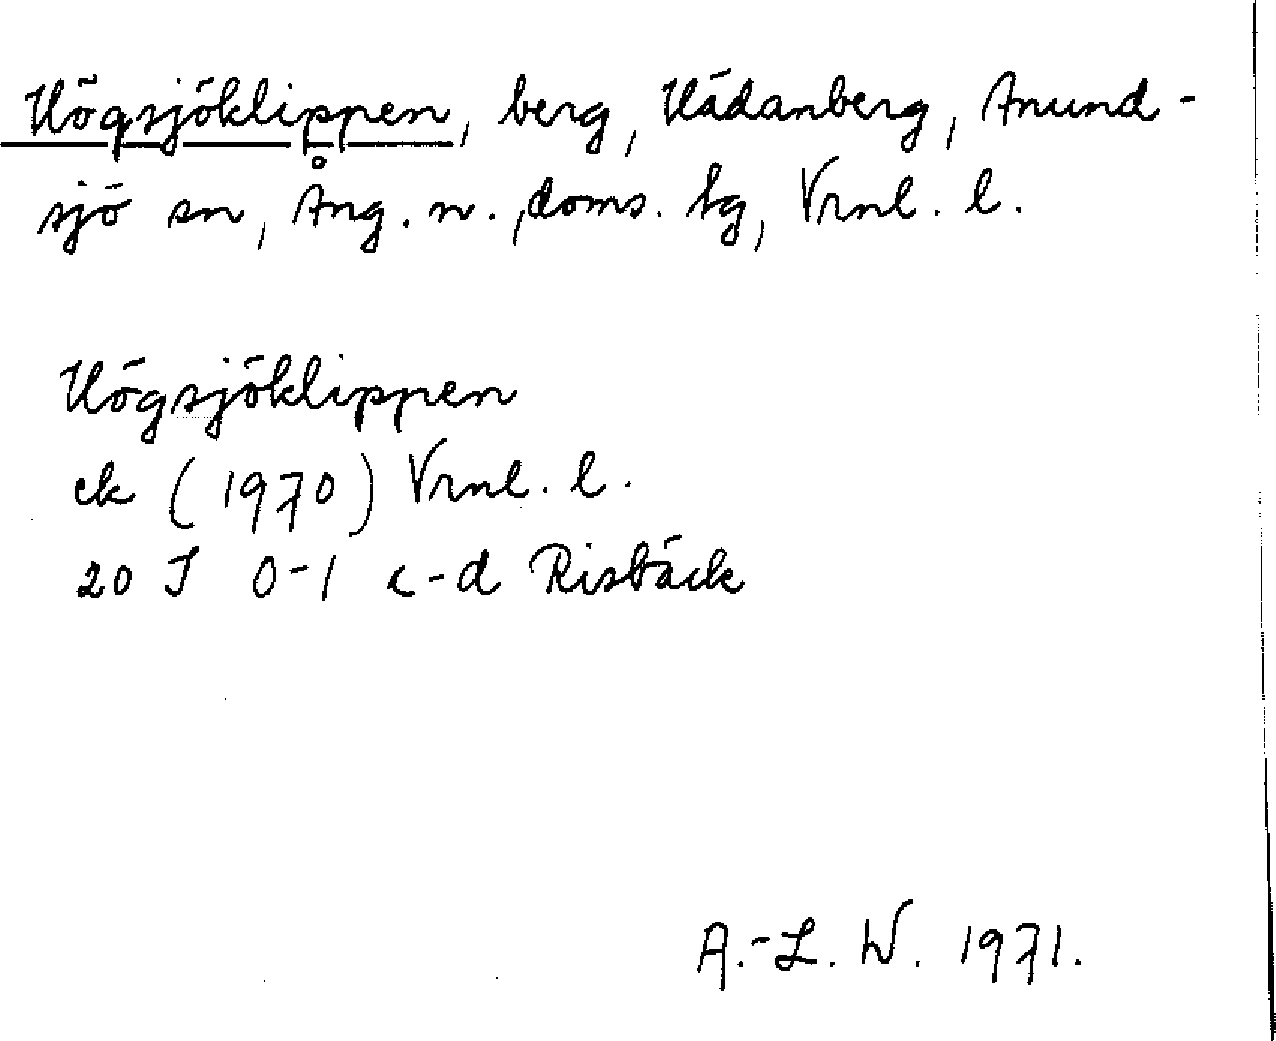 Högsjöklippen, berg, Hädanberg, Anund-
sjö sn, Ång. n., doms. tg, Vrnl. l.
Högsjöklippen
ek (1970) Vrnl. l.
20 J 0-1 c-d Risbäck
A.-L. W. 1971.